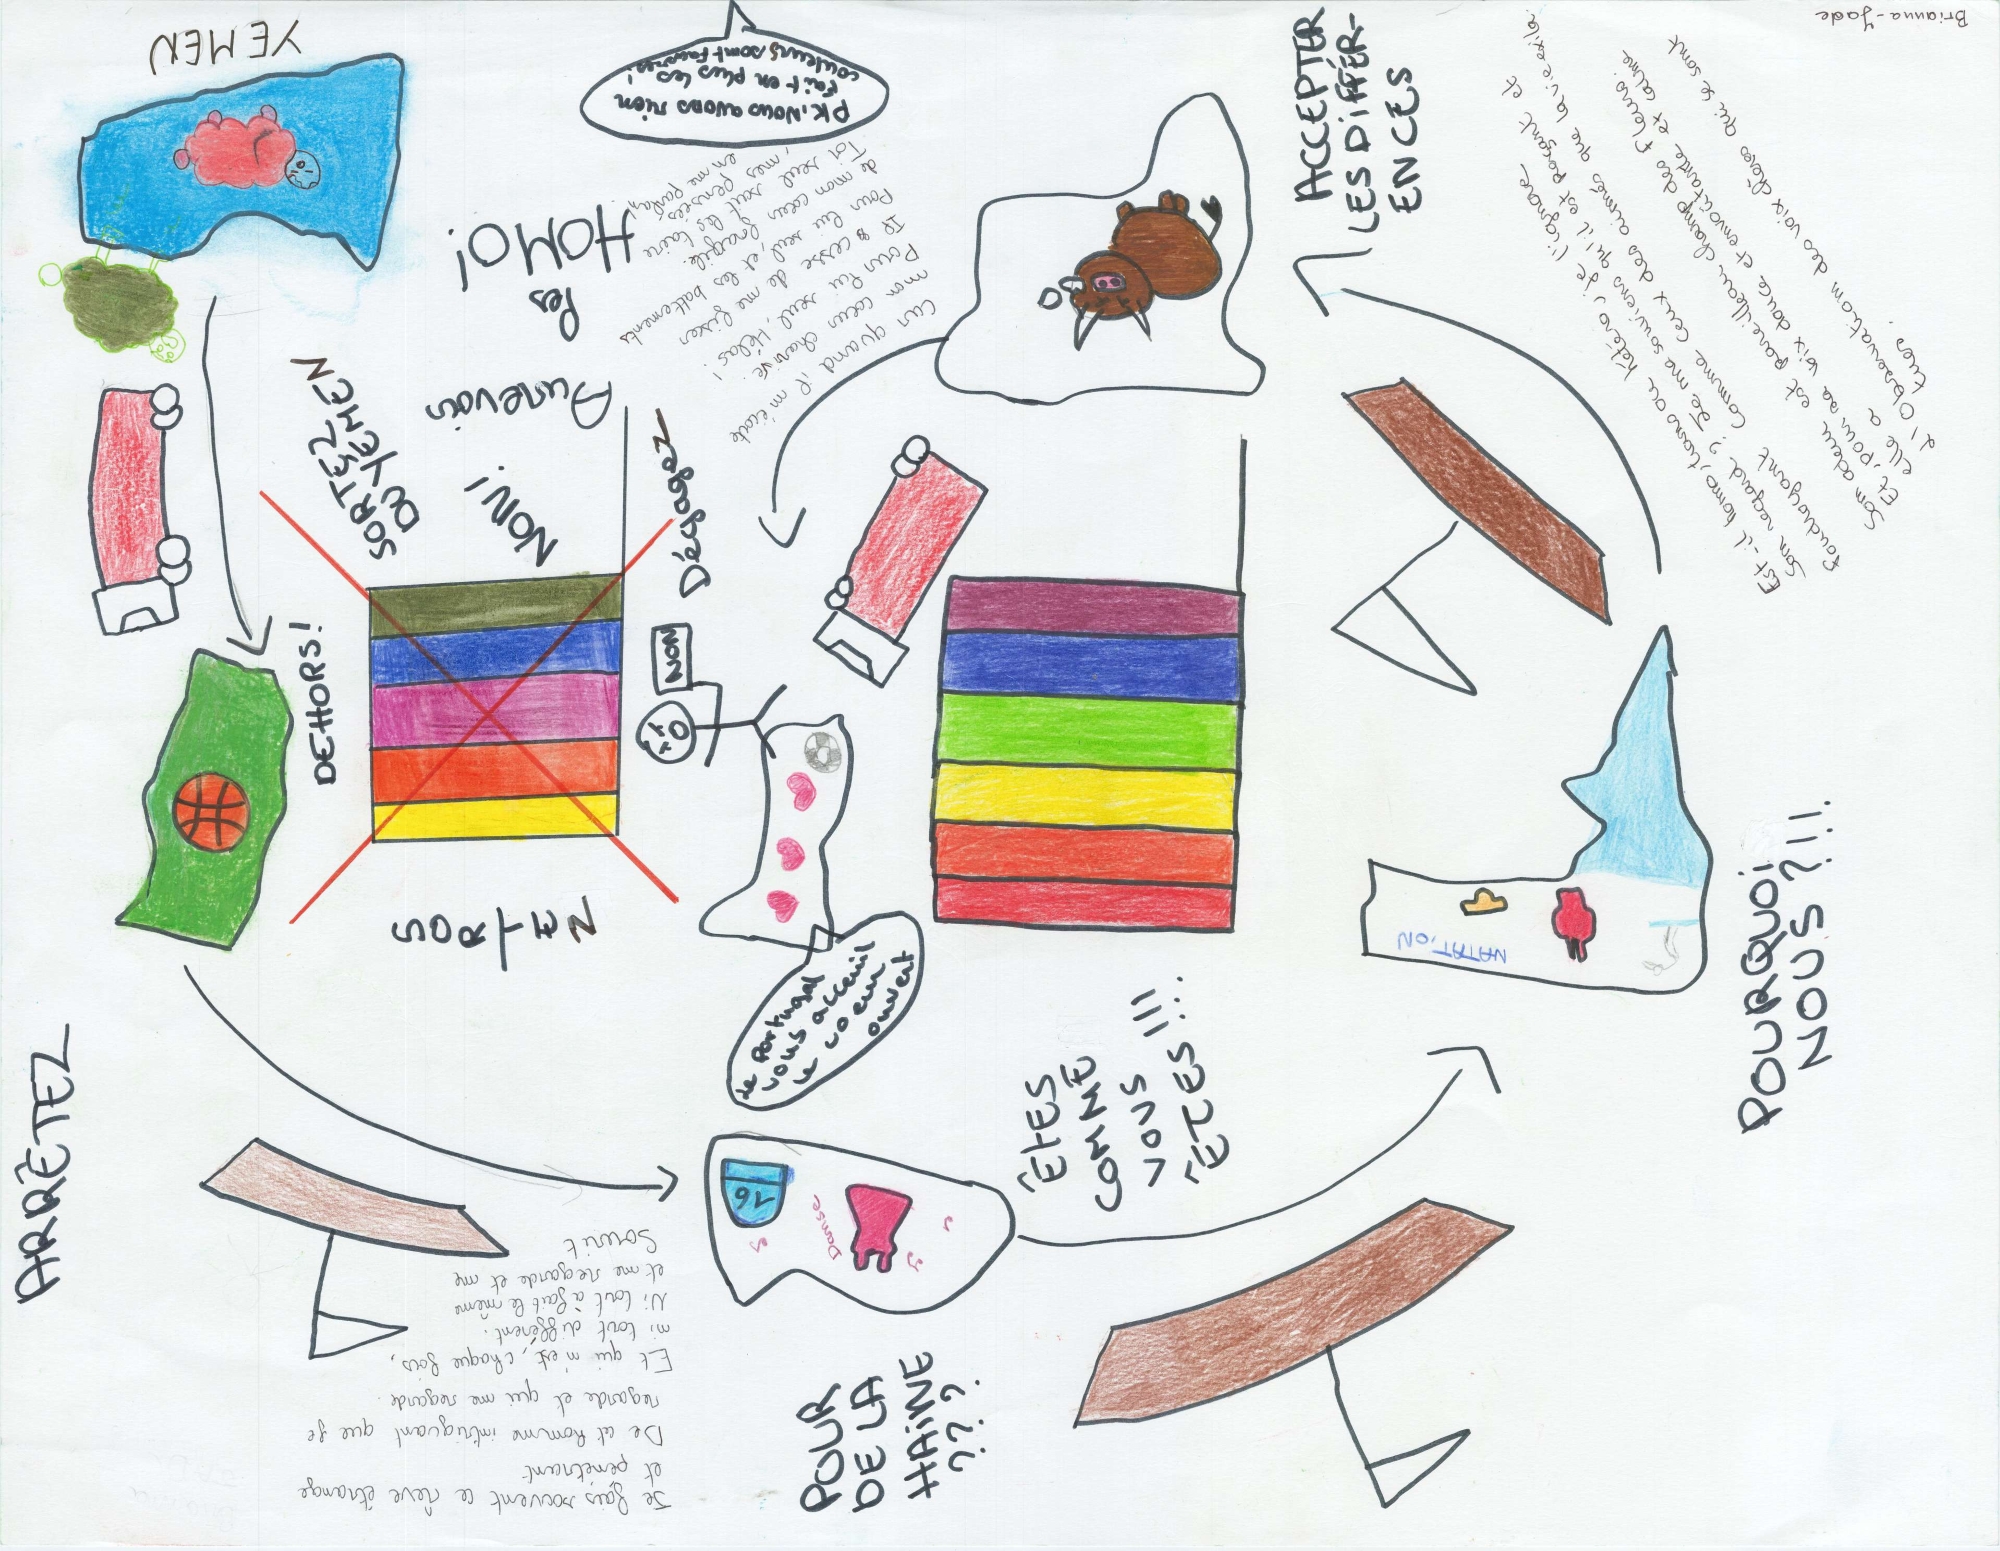 Brianna-Jade
YEMEN
PK, Nous avons rien
fait en plus les
couleurs sont fausses!
ACCEPTER
LES DIFFÉR-
ENCES
Aurevoir
les
HOMO!
SORTEZ
DU YÉMEN
NON!
Dégagez
DEHORS!
SORTEZ
NON
Le Portugal
vous acceuil
le coeur
ouvert
ARRÊTEZ
ÊTES
COMME
VOUS
ÊTES!!!
POURQUOI
NOUS?!!!
NATATION
Danse
76
POUR
DE LA
HAINE
???
Je fais souvent ce rêve étrange
et pénétrant
De cet homme intriguant que je
regarde et qui me regarde.
Et qui n'est, chaque fois,
ni tout différent.
Ni tout à fait le même
et me regarde et me
Sourit
Car quand il m'écoute
mon coeur chavire!
Pour lui seul, Hélas!
Il cesse de me fixer
Pour lui seul, et les battements
de mon coeur fragile.
Toi seul sait les taire
, mes pensées
en me parlant.
Est-il homo, trans ou hétéro, je l'ignore.
Son regard? Je me souviens qu'il est perçant et
foudroyant
Comme ceux des aimés que la vie exila.
Son odeur est pareil au champ de fleurs
Et, pour sa voix douce et envoûtante et calme
elle a
l'Observation des voix chères qui se sont
tues.